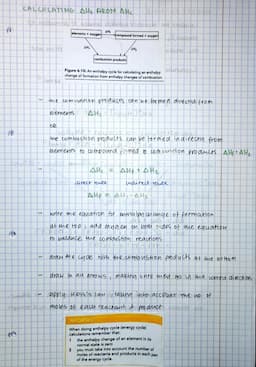 CALCULATING ΔHf FROM ΔHc
elements + oxygen
ΔHf
compound formed + oxygen
ΔH₁
ΔH₂
combustion products
Figure 6.10: An enthalpy cycle for calculating an enthalpy
change of formation from enthalpy changes of combustion.
- the combustion products can be formed directly from
elements ΔH₁
OR
- the combustion products can be formed indirectly from
elements to compound formed to combustion products ΔHf + ΔH₂
ΔH₁ = ΔHf + ΔH₂
direct route indirect route
ΔHf = ΔH₁ - ΔH₂
- write the equation for enthalpy change of formation
at the top; add oxygen on both sides of the equation
to balance the combustion reactions
- draw the cycle with the combustion products at the bottom
- draw in all arrows, making sure they go in the correct direction
- apply Hess's law, taking into account the no. of
moles of each reactant & product
IMPORTANT
When doing enthalpy cycle (energy cycle)
calculations remember that:
1 the enthalpy change of an element in its
normal state is zero
2 you must take into account the number of
moles of reactants and products in each part
of the energy cycle.